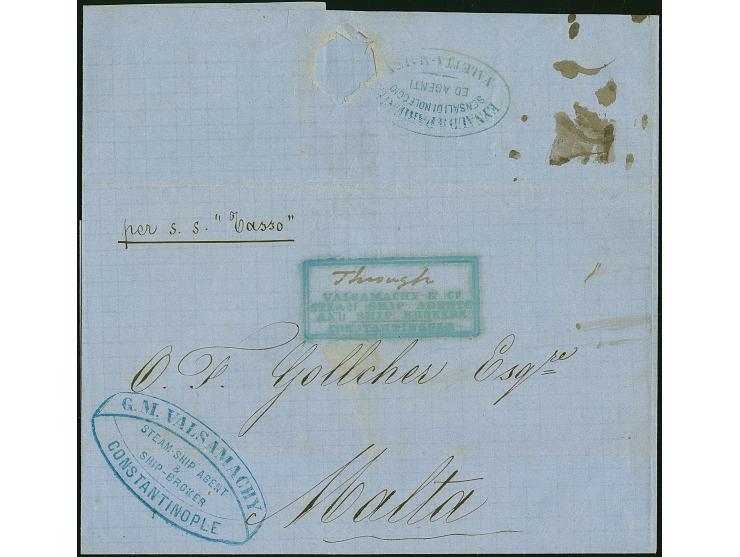 VALETTA-MALTA
ED AGENTI
SENSALI DI NOLEGGIO
per s. s. "Tasso"
Through
VALSAMACHY & Co
STEAM SHIP AGENTS
AND SHIP BROKERS
CONSTANTINOPLE
O. F. Gollcher Esqre
G. M. VALSAMACHY
STEAM-SHIP AGENT
&
SHIP-BROKER
CONSTANTINOPLE
Malta